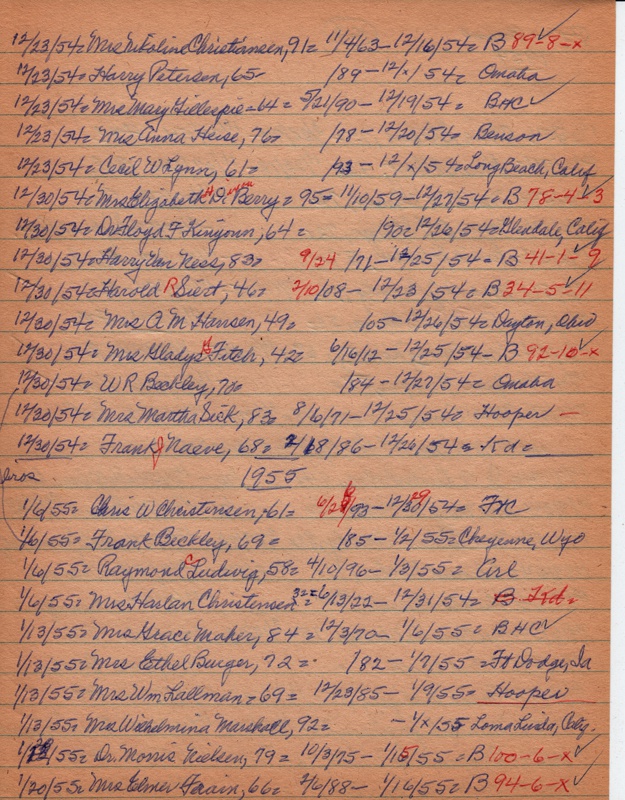 12/23/54= Mrs Nikoline Christiansen, 91= 11/4/63 - 12/16/54= B 89-8-x ✓
12/23/54= Harry Petersen, 65= /89 - 12/x/54= Omaha
12/23/54= Mrs Mary Gillespie = 64= 5/21/90 - 12/19/54= BHC ✓
12/23/54= Mrs Anna Heise, 76= /78 - 12/20/54= Benson
12/23/54= Cecil W Lynn, 61= /93 - 12/x/54= Long Beach, Calif
12/30/54= Mrs Elizabeth D. Berry = 95= 11/10/59 - 12/27/54= B 78-4-3 ✓
12/30/54= Dr Floyd F Kinyoun, 64= /90= 12/26/54= Glendale, Calif
12/30/54= Harry Van Ness, 83= 9/24/71 - 12/25/54= B 41-1-9 ✓
12/30/54= Harold R Siert, 46= 2/10/08 - 12/23/54= B 34-5-11 ✓
12/30/54= Mrs A M Hansen, 49= /05 - 12/26/54= Dayton, Ohio
12/30/54= Mrs Gladys Fitch, 42= 6/16/12 - 12/25/54 - B 92-10-x ✓
12/30/54= W R Beckley, 70= /84 - 12/27/54= Omaha
12/30/54= Mrs Martha Sick, 83= 8/6/71 - 12/25/54= Hooper -
12/30/54= Frank J Naeve, 68= /8/86 - 12/26/54= Kd=
Bros 1955
1/6/55= Chris W Christensen, 61= /93 - 12/29/54= FK
1/6/55= Frank Beckley, 69= /85 - 1/2/55= Cheyenne, Wyo
1/6/55= Raymond C Ludwig, 58= 4/10/96 - 1/3/55= Arl
1/6/55= Mrs Harlan Christensen 32= 6/13/22 - 12/31/54= B Kd=
1/13/55= Mrs Grace Maher, 84= 12/3/70 - 1/6/55= BHC ✓
1/13/55= Mrs Ethel Burger, 72= /82 - 1/7/55= Ft Dodge, Ia
1/13/55= Mrs Wm Lallman = 69= 12/23/85 - 1/9/55= Hooper
1/13/55= Mrs Wilhelmina Marshall, 92= - 1/x/55 Loma Linda, Calif.
/55= Dr. Morris Nielsen, 79= 10/3/75 - 1/15/55= B 100-6-x ✓
1/20/55= Mrs Elmer, 66= 2/6/88 - 1/16/55= B 94-6-x ✓